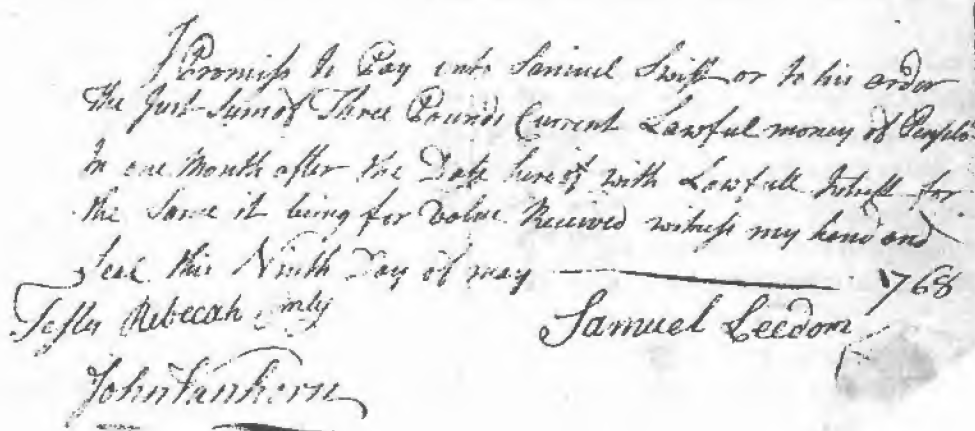 I Promiss to Pay unto Samuel Swift or to his order
the Just Sum of Three Pounds Current Lawful money of
In one Month after the Date hereof with Lawfull Intrest for
the Same it being for Value Received witness my hand and
Seal this Ninth Day of may 1768
Testes Rebecah Samuel Leedom
John Vanhorn